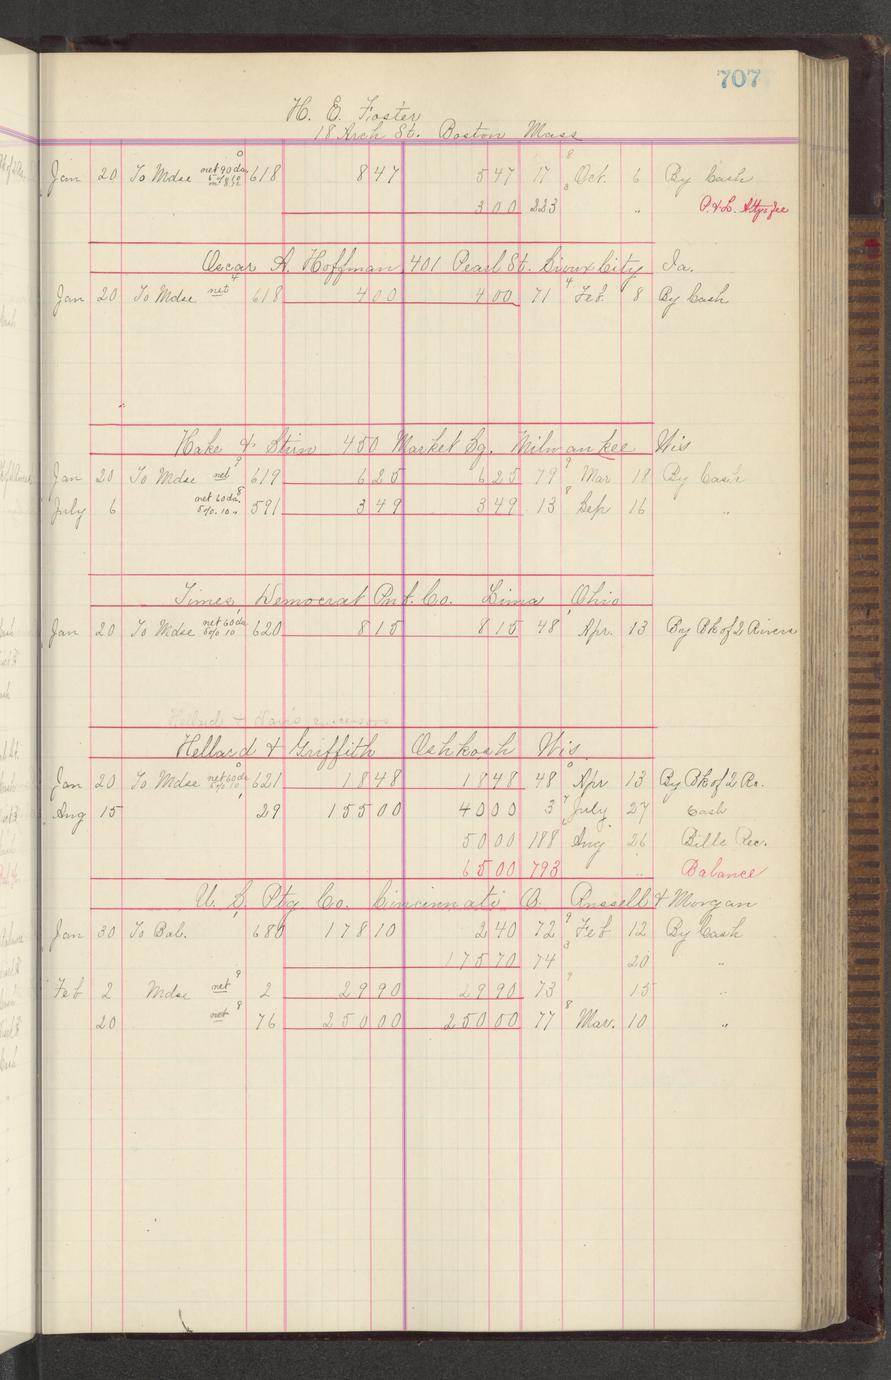 707
H. E. Foster
18 Arch St. Boston Mass
Jan 20 To Mdse net 90 da. 618 8 47 5 47 17 Oct. 6 By Cash
3 00 223 " P. & L. Atty's fee
Oscar A. Hoffman 401 Pearl St. Sioux City Ia.
Jan 20 To Mdse net 618 4 00 4 00 71 Feb. 8 By Cash
Hake & Stirn 450 Market Sq. Milwaukee Wis
Jan 20 To Mdse net 619 6 25 6 25 79 Mar 18 By Cash
July 6 net 60 da. 5% 10 " 591 3 49 3 49 13 Sep 16 "
Times Democrat Pnt. Co. Lima, Ohio
Jan 20 To Mdse net 60 da 5% 10 620 8 15 8 15 48 Apr. 13 By Bk of 2 Rivers
Hellard &
Hellard & Griffith Oshkosh Wis.
Jan 20 To Mdse net 60 da 5% 10 621 18 48 18 48 48 Apr 13 By Bk of 2 Rs.
Aug 15 29 155 00 40 00 3 July 27 Cash
50 00 188 Aug 26 Bills Rec.
65 00 793 " Balance
U. S. Ptg Co. Cincinnati O. Russell & Morgan
Jan 30 To Bal. 680 178 10 2 40 72 Feb 12 By Cash
175 70 74 20 "
Feb 2 Mdse net 2 29 90 29 90 73 15 "
20 net 76 250 00 250 00 77 Mar. 10 "